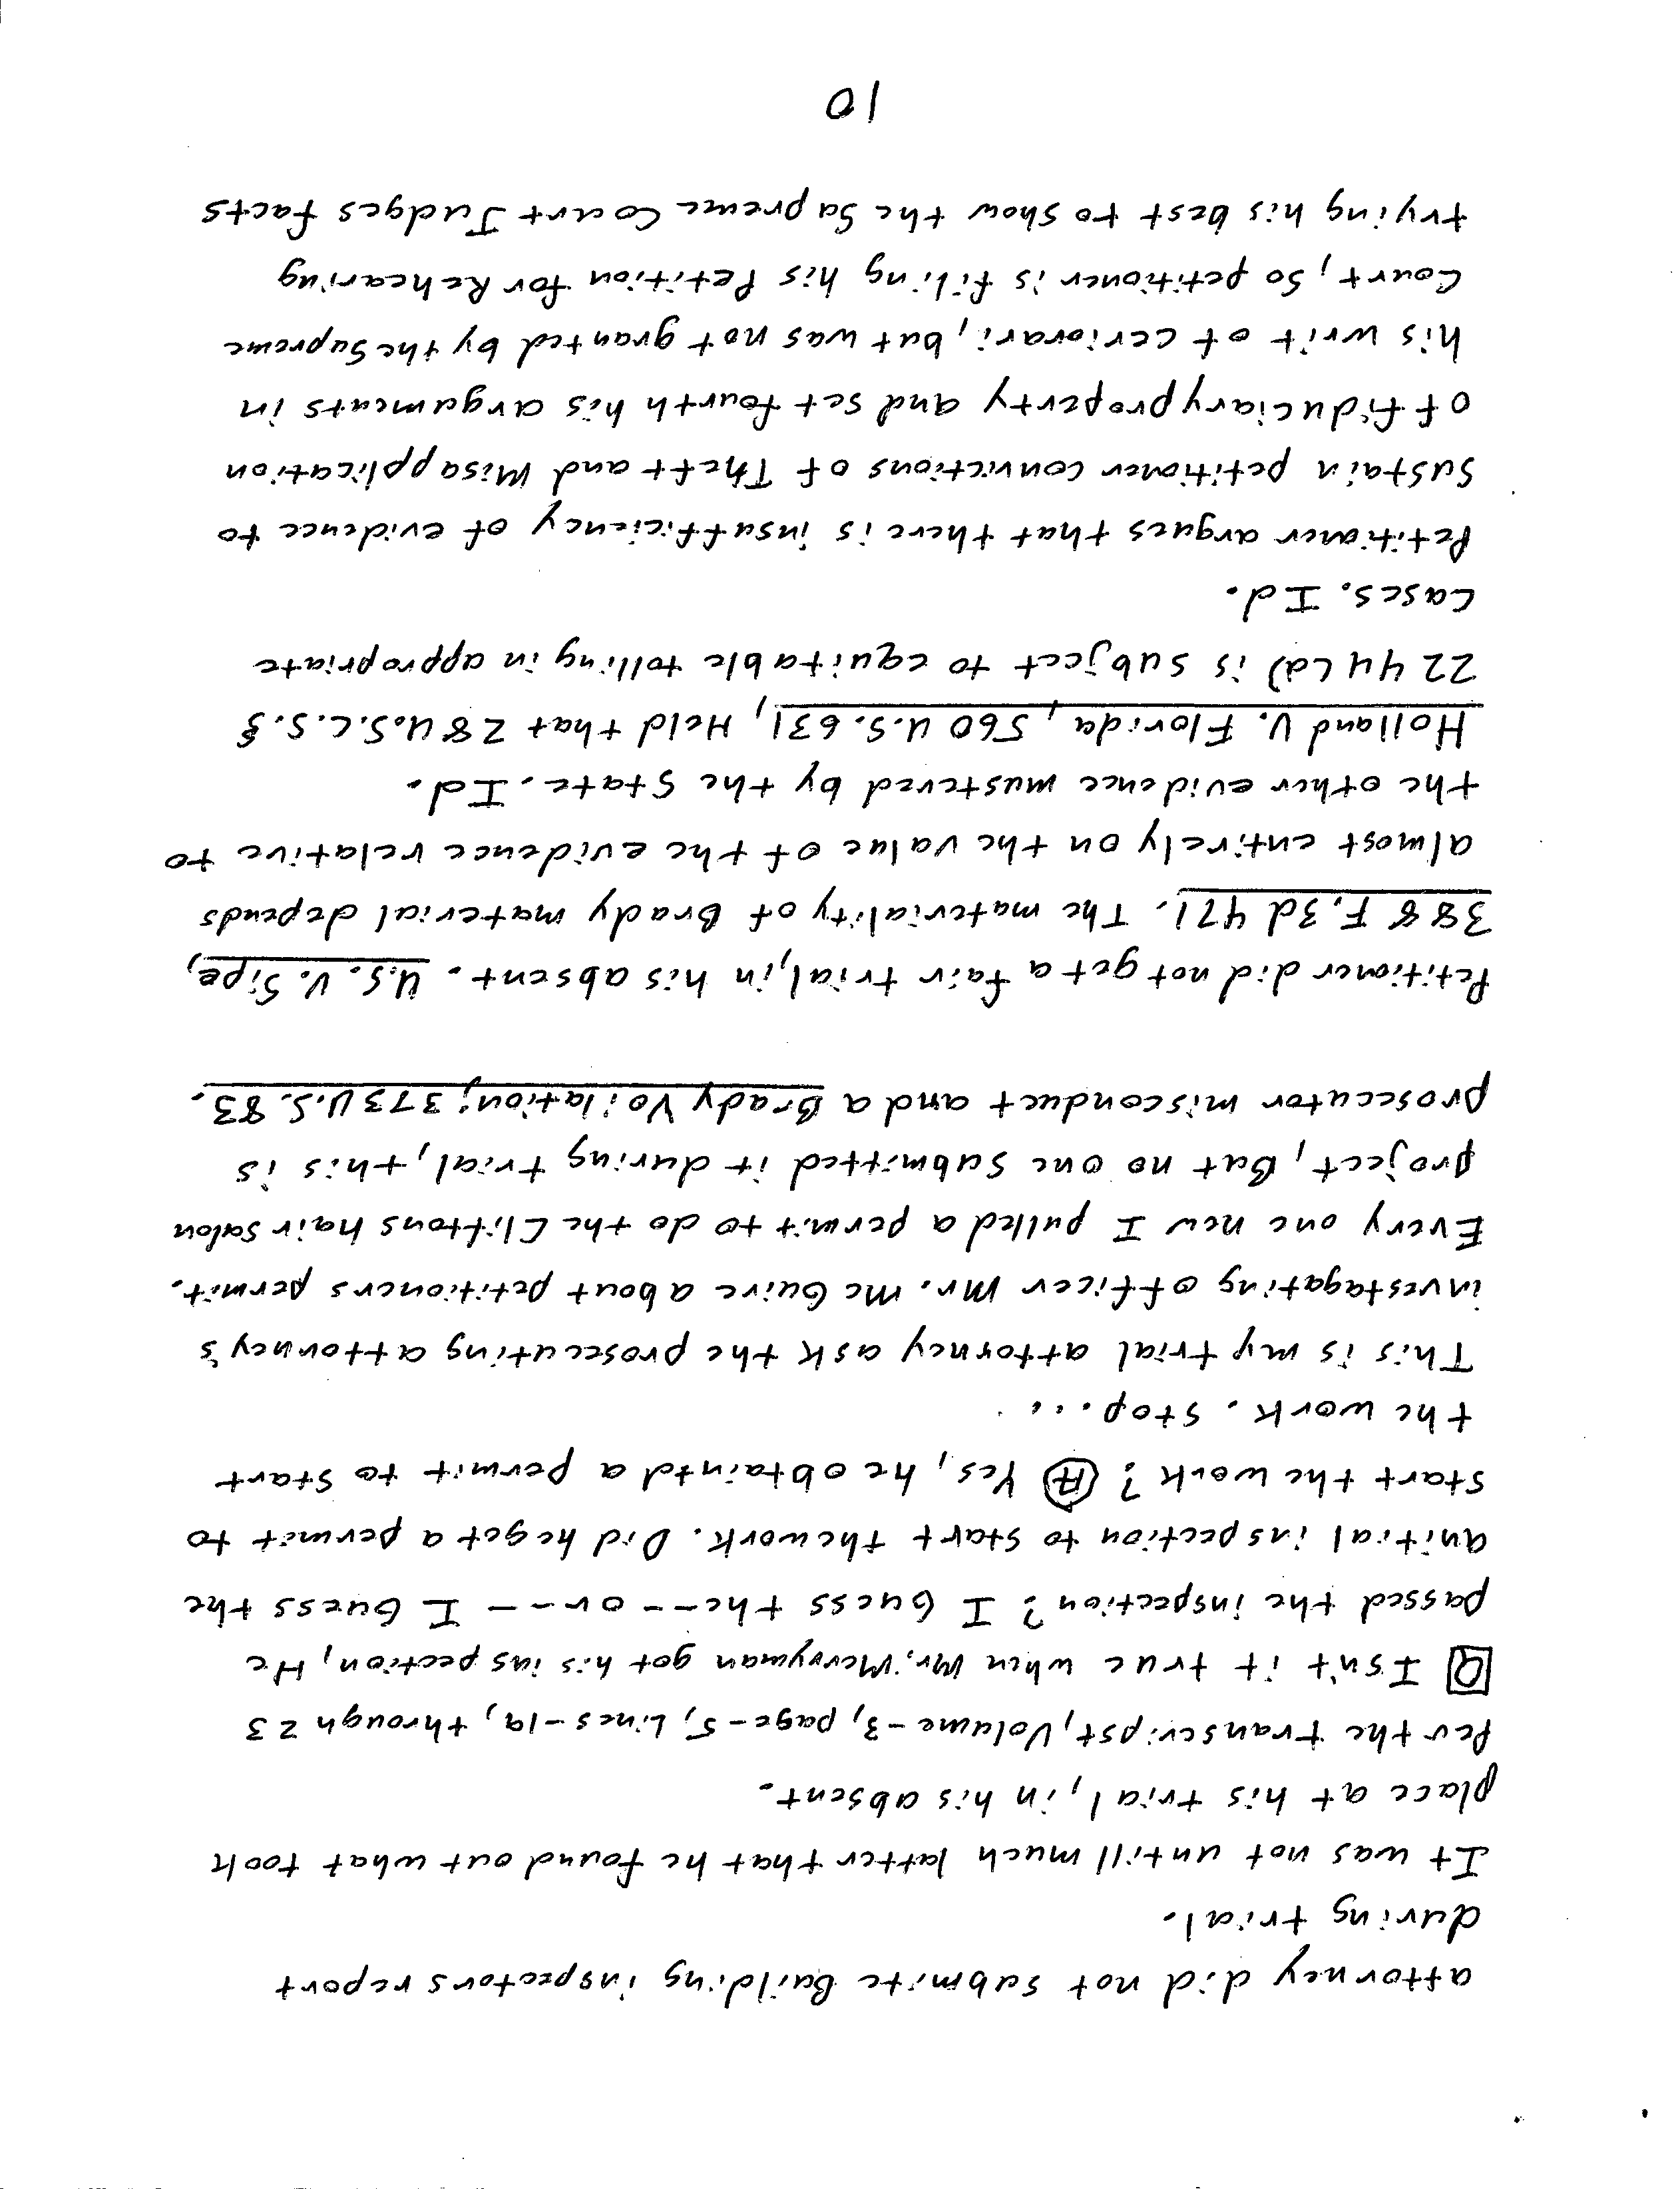 attorney did not submite Building inspectors report
during trial.
It was not untill much latter that he found out what took
place at his trial, in his absent.
Per the transcripst, Volume-3, page-5, Lines-19, through 23
Q Isn't it true when Mr. Merryman got his inspection, He
passed the inspection? I Guess the-- or--- I Guess the
anitial inspection to start the work. Did he get a permit to
start the work? A Yes, he obtaintd a permit to start
the work. Stop...
This is my trial attorney ask the prosecuting attorney's
investagating officer Mr. McGuire about petitioners permit.
Every one new I pulled a permit to do the Cliftons hair salon
project, But no one submitted it during trial, this is
prosecutor misconduct and a Brady Voilation; 373 U.S. 83.
Petitioner did not get a fair trial, in his absent. U.S. V. Sipe,
388 F.3d 471. The materiality of Brady material depends
almost entirely on the value of the evidence relative to
the other evidence mustered by the State. Id.
Holland V. Florida, 560 U.S. 631, Held that 28 U.S.C.S. §
2244(d) is subject to equitable tolling in appropriate
cases. Id.
Petitioner argues that there is insufficiency of evidence to
sustain petitioner convictions of Theft and Misapplication
of fiduciary property and set fourth his arguments in
his writ of ceriorari, but was not granted by the Supreme
Court, So petitioner is filing his Petition for Rehearing
trying his best to show the Supreme Court Judges facts
10